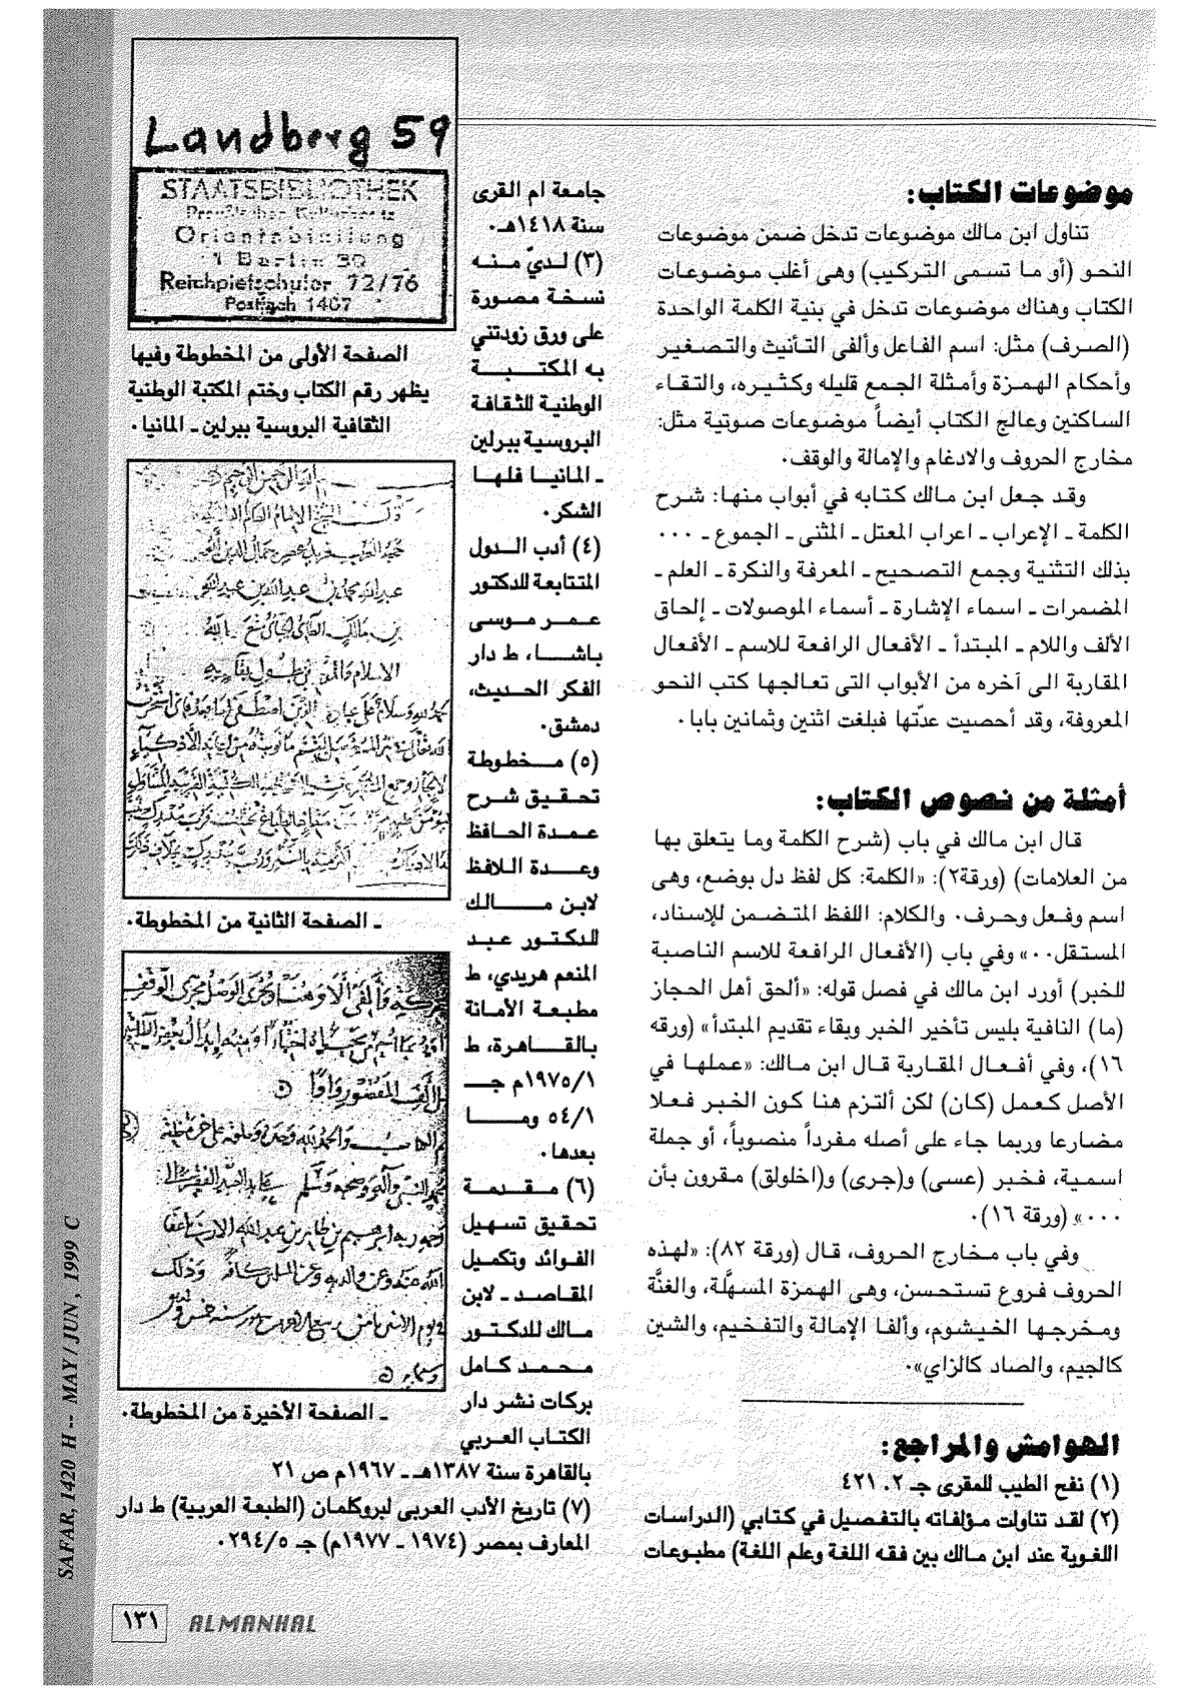 موضوعات الكتاب:
تناول ابن مالك موضوعات تدخل ضمن موضوعات
النحو (أو ما تسمى التركيب) وهى أغلب موضوعات
الكتاب وهناك موضوعات تدخل في بنية الكلمة الواحدة
(الصرف) مثل: اسم الفاعل وألفى التأنيث والتصغير
وأحكام الهمزة وأمثلة الجمع قليله وكثيره، والتقاء
الساكنين وعالج الكتاب أيضاً موضوعات صوتية مثل:
مخارج الحروف والادغام والإمالة والوقف.
وقد جعل ابن مالك كتابه في أبواب منها: شرح
الكلمة ـ الإعراب ـ اعراب المعتل ـ المثنى ـ الجموع ـ ...
بذلك التثنية وجمع التصحيح ـ المعرفة والنكرة ـ العلم ـ
المضمرات ـ اسماء الإشارة ـ أسماء الموصولات ـ إلحاق
الألف واللام ـ المبتدأ ـ الأفعال الرافعة للاسم ـ الأفعال
المقاربة الى آخره من الأبواب التى تعالجها كتب النحو
المعروفة، وقد أحصيت عدّتها فبلغت اثنين وثمانين بابا.
أمثلة من نصوص الكتاب:
قال ابن مالك في باب (شرح الكلمة وما يتعلق بها
من العلامات) (ورقة٢): «الكلمة: كل لفظ دل بوضع، وهى
اسم وفعل وحرف. والكلام: اللفظ المتضمن للإسناد،
المستقل..» وفي باب (الأفعال الرافعة للاسم الناصبة
للخبر) أورد ابن مالك في فصل قوله: «ألحق أهل الحجاز
(ما) النافية بليس تأخير الخبر وبقاء تقديم المبتدأ» (ورقه
١٦)، وفي أفعال المقاربة قال ابن مالك: «عملها في
الأصل كعمل (كان) لكن ألتزم هنا كون الخبر فعلا
مضارعا وربما جاء على أصله مفرداً منصوباً، أو جملة
اسمية، فخبر (عسى) و(جرى) و(اخلولق) مقرون بأن
...» (ورقة ١٦).
وفي باب مخارج الحروف، قال (ورقة ٨٢): «لهذه
الحروف فروع تستحسن، وهى الهمزة المسهَّلة، والغنَّة
ومخرجها الخيشوم، وألفا الإمالة والتفخيم، والشين
كالجيم، والصاد كالزاي».
الهوامش والمراجع:
(١) نفح الطيب للمقرى جـ ٢. ٤٢١
(٢) لقد تناولت مؤلفاته بالتفصيل في كتابي (الدراسات
اللغوية عند ابن مالك بين فقه اللغة وعلم اللغة) مطبوعات
جامعة ام القرى
سنة ١٤١٨هـ.
(٣) لديّ منه
نسخة مصورة
على ورق زودتني
به المكتبة
الوطنية للثقافة
البروسية ببرلين
ـ المانيا فلها
الشكر.
(٤) أدب الدول
المتتابعة للدكتور
عمر موسى
باشا، ط دار
الفكر الحديث،
دمشق.
(٥) مخطوطة
تحقيق شرح
عمدة الحافظ
وعدة اللافظ
لابن مالك
للدكتور عبد
المنعم هريدي، ط
مطبعة الأمانة
بالقاهرة، ط
١٩٧٥/١م جـ
٥٤/١ وما
بعدها.
(٦) مقدمة
تحقيق تسهيل
الفوائد وتكميل
المقاصد ـ لابن
مالك للدكتور
محمد كامل
بركات نشر دار
الكتاب العربي
بالقاهرة سنة ١٣٨٧هـ ـ ١٩٦٧م ص ٢١
(٧) تاريخ الأدب العربى لبروكلمان (الطبعة العربية) ط دار
المعارف بمصر (١٩٧٤ ـ ١٩٧٧م) جـ ٢٩٤/٥.
Landberg 59
STAATSBIBLIOTHEK
Orientabteilung
1 Berlin 30
Reichpietschufer 72/76
Postfach 1407
الصفحة الأولى من المخطوطة وفيها
يظهر رقم الكتاب وختم المكتبة الوطنية
الثقافية البروسية ببرلين ـ المانيا.
ـ الصفحة الثانية من المخطوطة.
ـ الصفحة الأخيرة من المخطوطة.
SAFAR, 1420 H -- MAY / JUN , 1999 C
١٣١ ALMANHAL